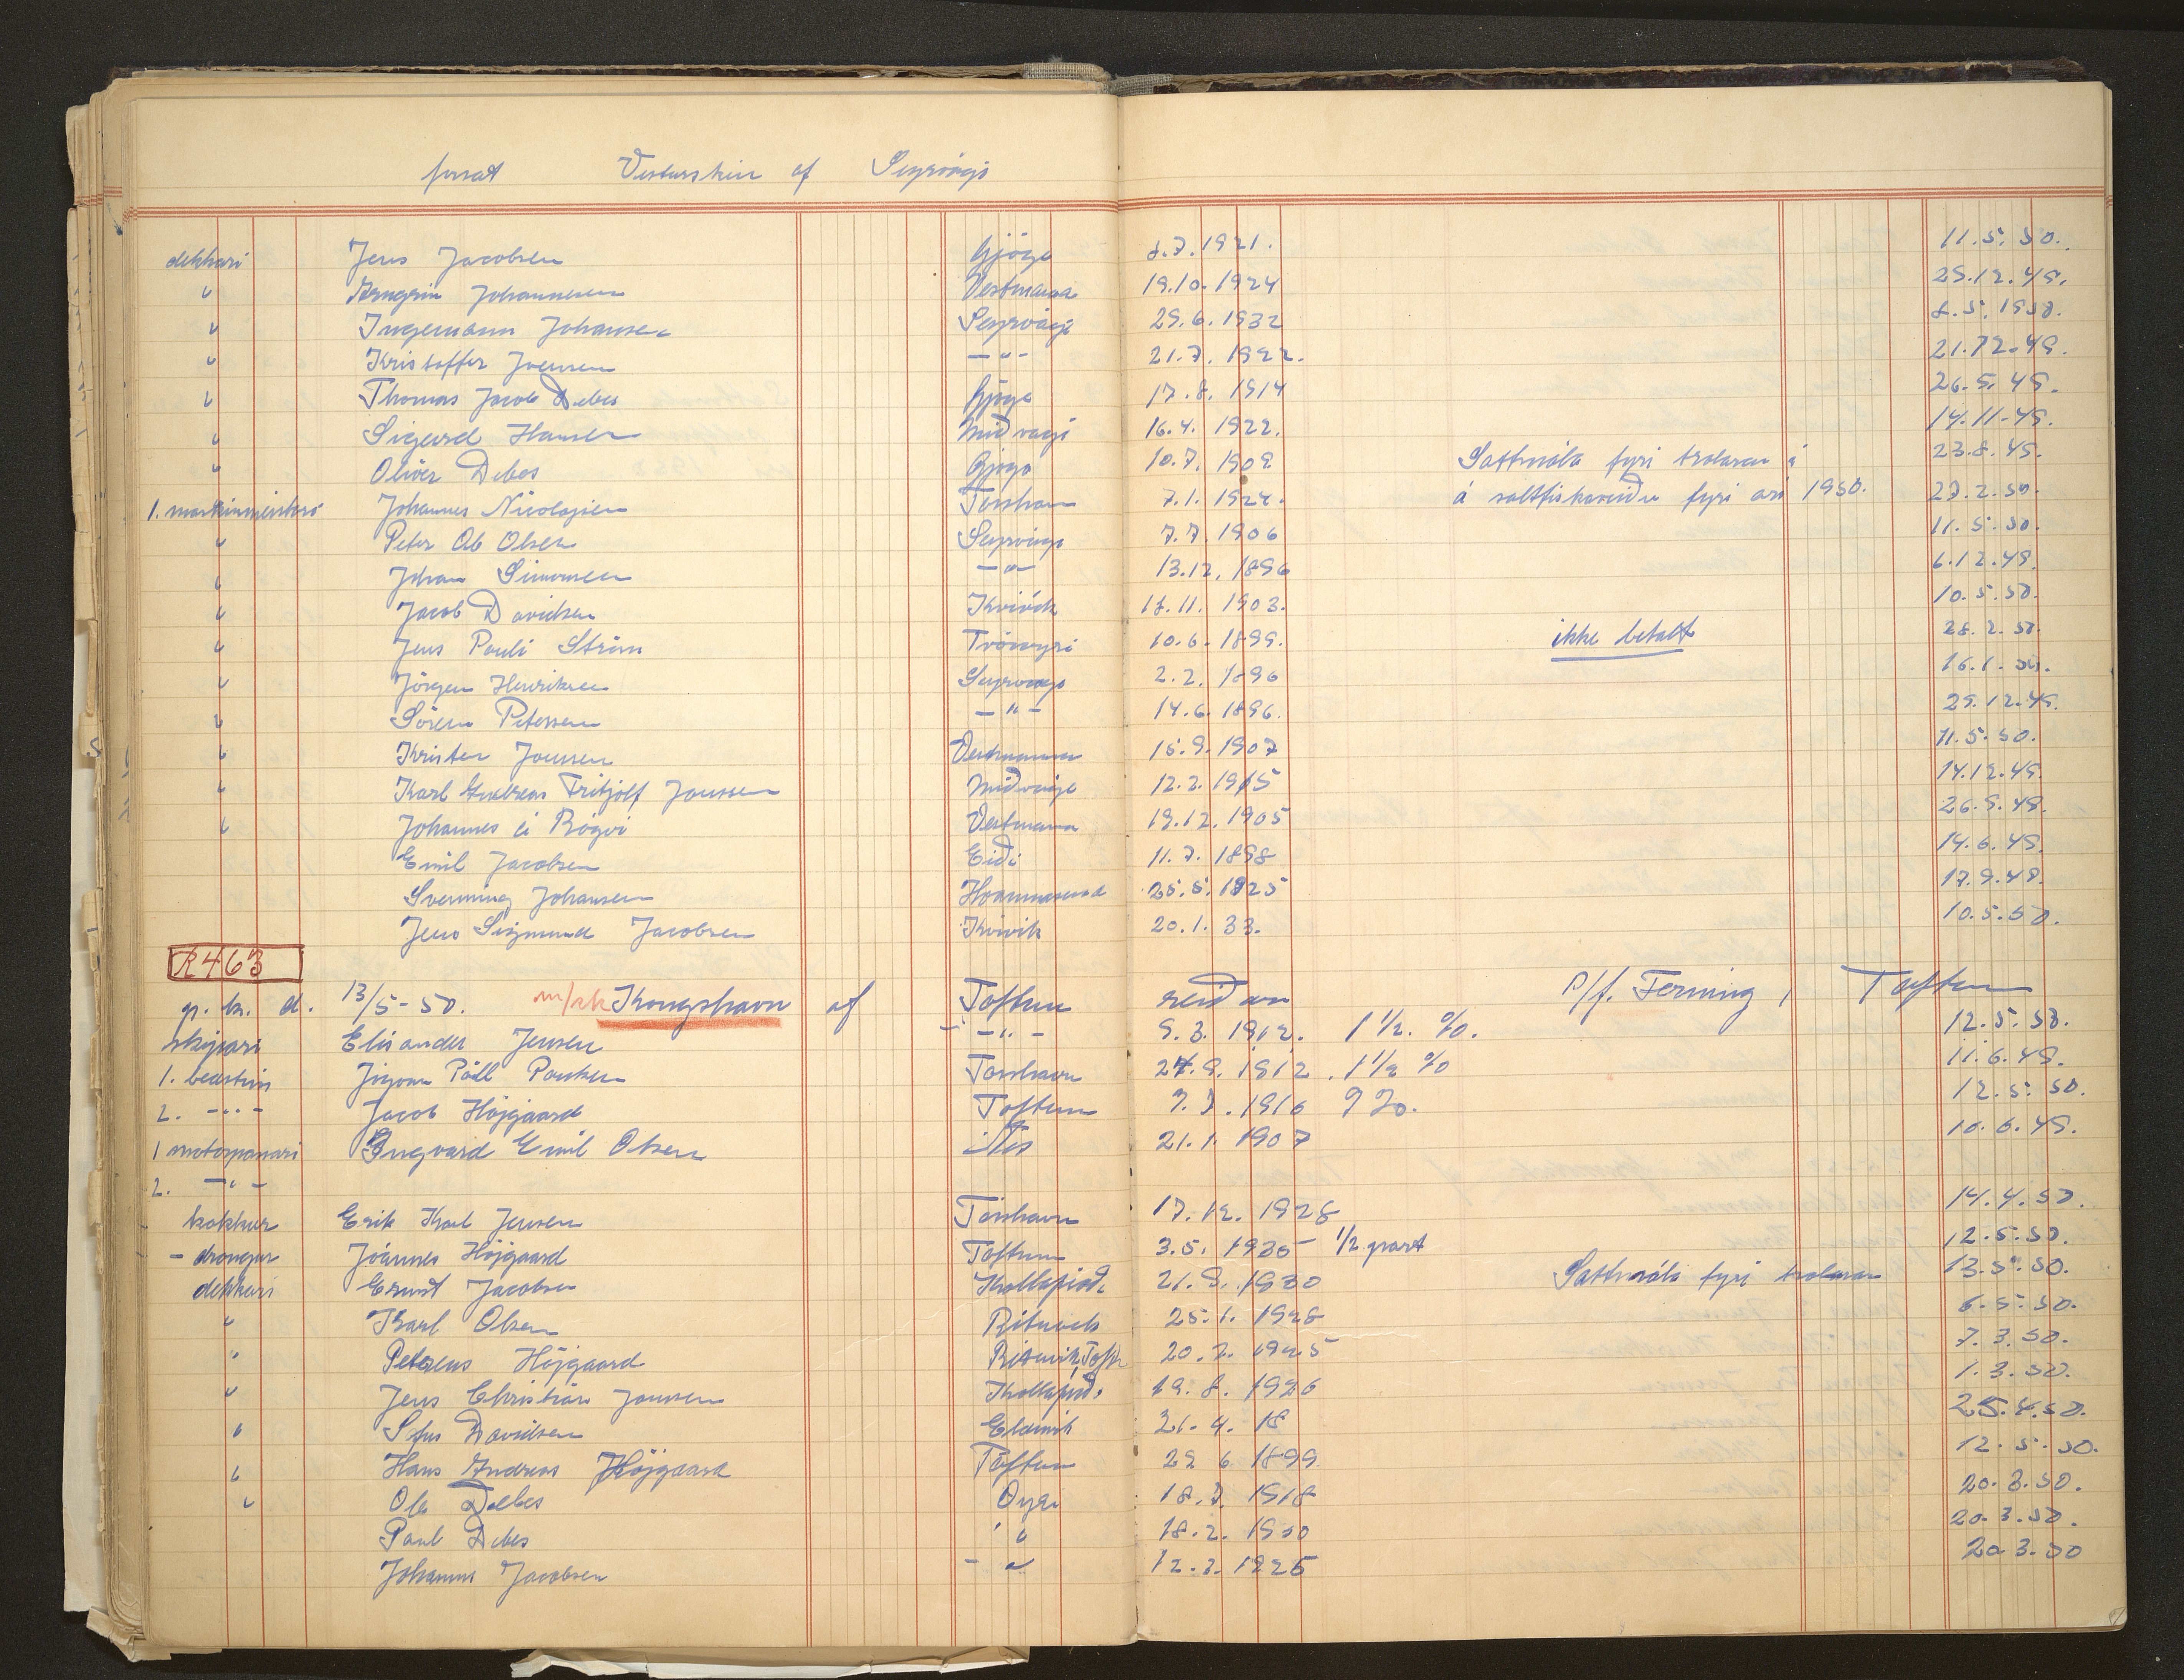 forsat Vesturskin af Sørvági
dekkari Jens Jacobsen Gjógv 8.7.1921. 11.5.50.
" Arngrim Johannesen Vestmanna 19.10.1924 29.12.49.
" Ingemann Johansen Sørvági 29.6.1932 8.5.1950.
" Kristoffer Joensen -"- 21.7.1922. 21.12.49.
" Thomas Jacob Debes Gjógv 17.8.1914 26.5.49.
" Sigurd Hansen Miðvági 16.4.1922. 14.11-49.
" Oliver Debes Gjógv 10.7.1909 Sáttmála fyri trolaran í 23.8.49.
1. maskinmeistari Johannes Nicolajsen Torshavn 7.1.1924. á saltfiskaveiðu fyri árið 1950. 27.2.50.
" Peter Ole Olsen Sørvági 7.7.1906 11.5.50.
" Johan Simonsen -"- 13.12.1896 6.12.49.
" Jacob Davidsen Kvívík 17.11.1903. 10.5.50.
" Jens Pauli Ström Tvöroyri 10.6.1899. ikke betalt 28.2.50.
" Jörgen Henriksen Sørvági 2.2.1896 16.1.50.
" Sörin Petersen -"- 14.6.1896. 29.12.49.
" Kristen Joensen Vestmanna 15.9.1907 11.5.50.
" Karl Andreas Fritjolf Joensen Miðvági 12.2.1915 14.12.49.
" Johannes á Rógvi Vestmanna 19.12.1905 26.9.49.
Emil Jacobsen Eiði 11.7.1898 14.6.49.
Svenning Johansen 25.5.1925 17.9.49.
Jens Sigmund Jacobsen Kvívík 20.1.33. 10.5.50.
R463
g. k. d. 13/5-50. m/sk Kongshavn af Toftum reiðari P/f. Ferming, Toftum
skipari Elisander Jensen -"- 9.3.1912. 1 1/2 %. 12.5.50.
1. bestm. Jógvan Páll Poulsen Torshavn 24.9.1912. 1 1/2 % 11.6.49.
2. -"- Jacob Höjgaard Toftum 7.7.1916 12.5.50.
1 motorpassari Ingvard Emil Olsen Nes 21.1.1907 10.6.49.
2. -"-
kokkur Erik Karl Jensen Tórshavn 17.12.1928 14.4.50.
- drongur Jóannes Höjgaard Toftum 3.5.1935 1/2 part 12.5.50.
dekkari Ernst Jacobsen Kollafirð. 21.9.1930 Sáttmála fyri trolaran 13.5.50.
" Karl Olsen Rituvík 25.1.1928 6.5.50.
" Petrus Höjgaard Rituvik, Toft. 20.2.1925 7.3.50.
" Jens Christian Joensen Kollafirð. 19.8.1926 1.3.50.
" Davidsen Elduvík 21.4.18 25.4.50.
" Hans Andreas Höjgaard Toftum 29 6 1899 12.5.50.
" Ole Debes Oyri 18.7 1918 20.3.50.
Paul Debes " 18.2.1930 20.3.50.
Johannus Jacobsen -" 12.2.1925 20.3.50